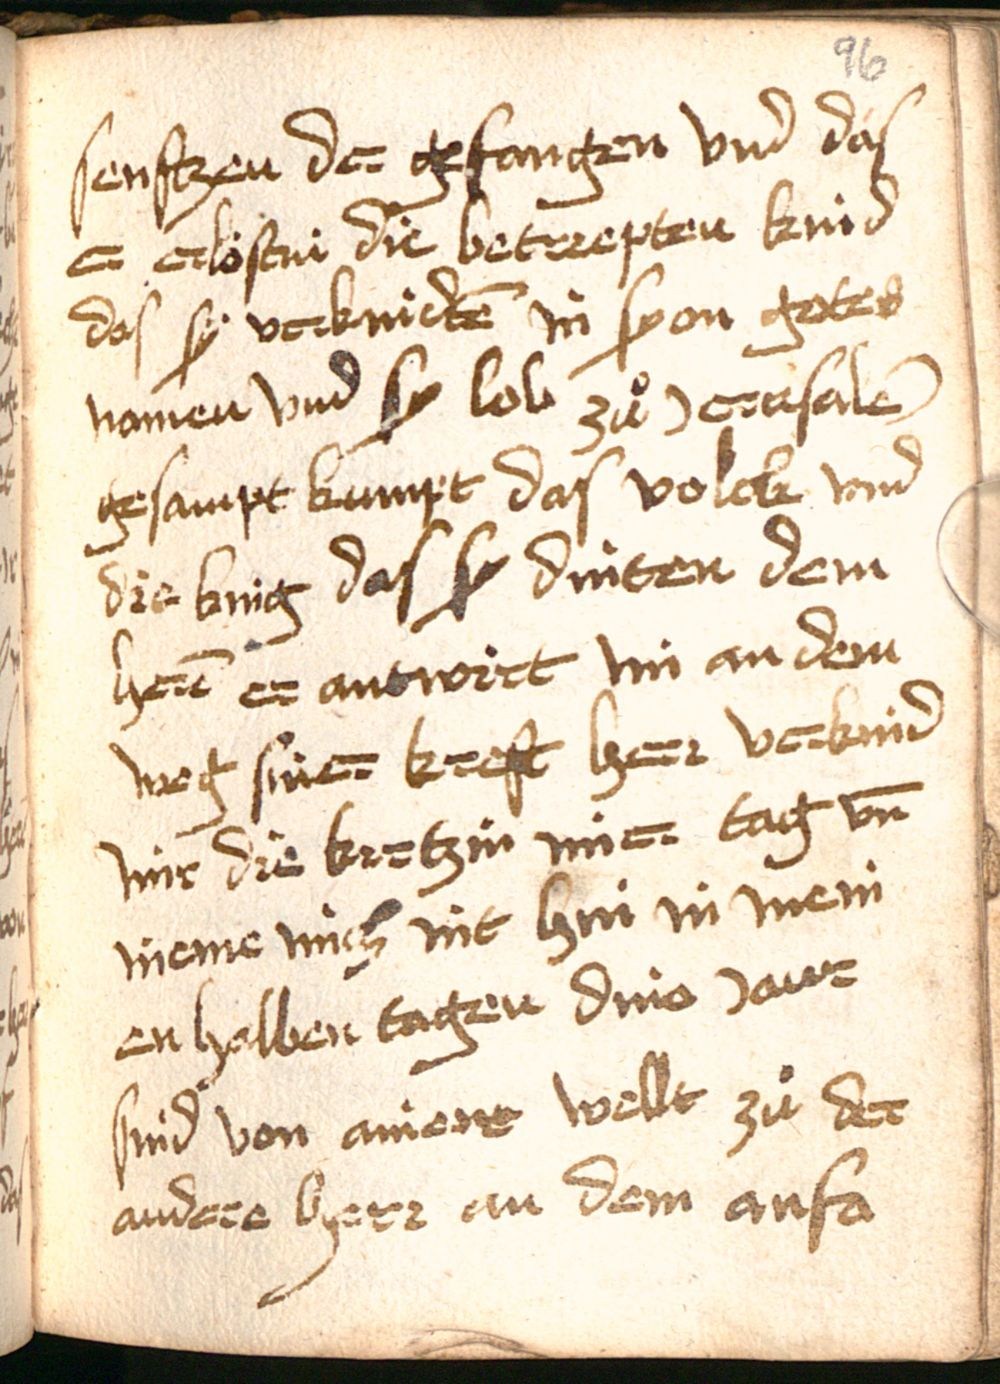 96
senftzen der gefangen vnd das
er erlösti die bettrepten kind
das sy verkn̄idtē in syon gotes
namen vnd sy lob zů Jerusalē
gesampt kumpt das volck vnd
die knig das sy dniten dem
herē er antwirt im an dem
weg siner kreft herr verknid
mir die kretzin miner tag vn̄
nieme mich nit hin in mein
en halben tagen dino Jaur
sind von ainene wellt zů der
andere herr an dem anfa